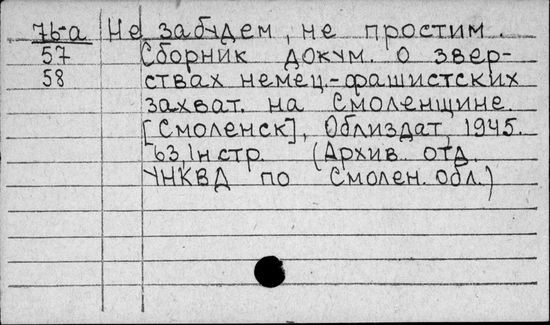 76-а Не забудем, не простим.
57 Сборник докум. о звер-
58 ствах немец.-фашистских
захват. на Смоленщине.
[Смоленск], Облиздат, 1945.
63, Iн стр. (Архив. отд.
УНКВД по Смолен. обл.)